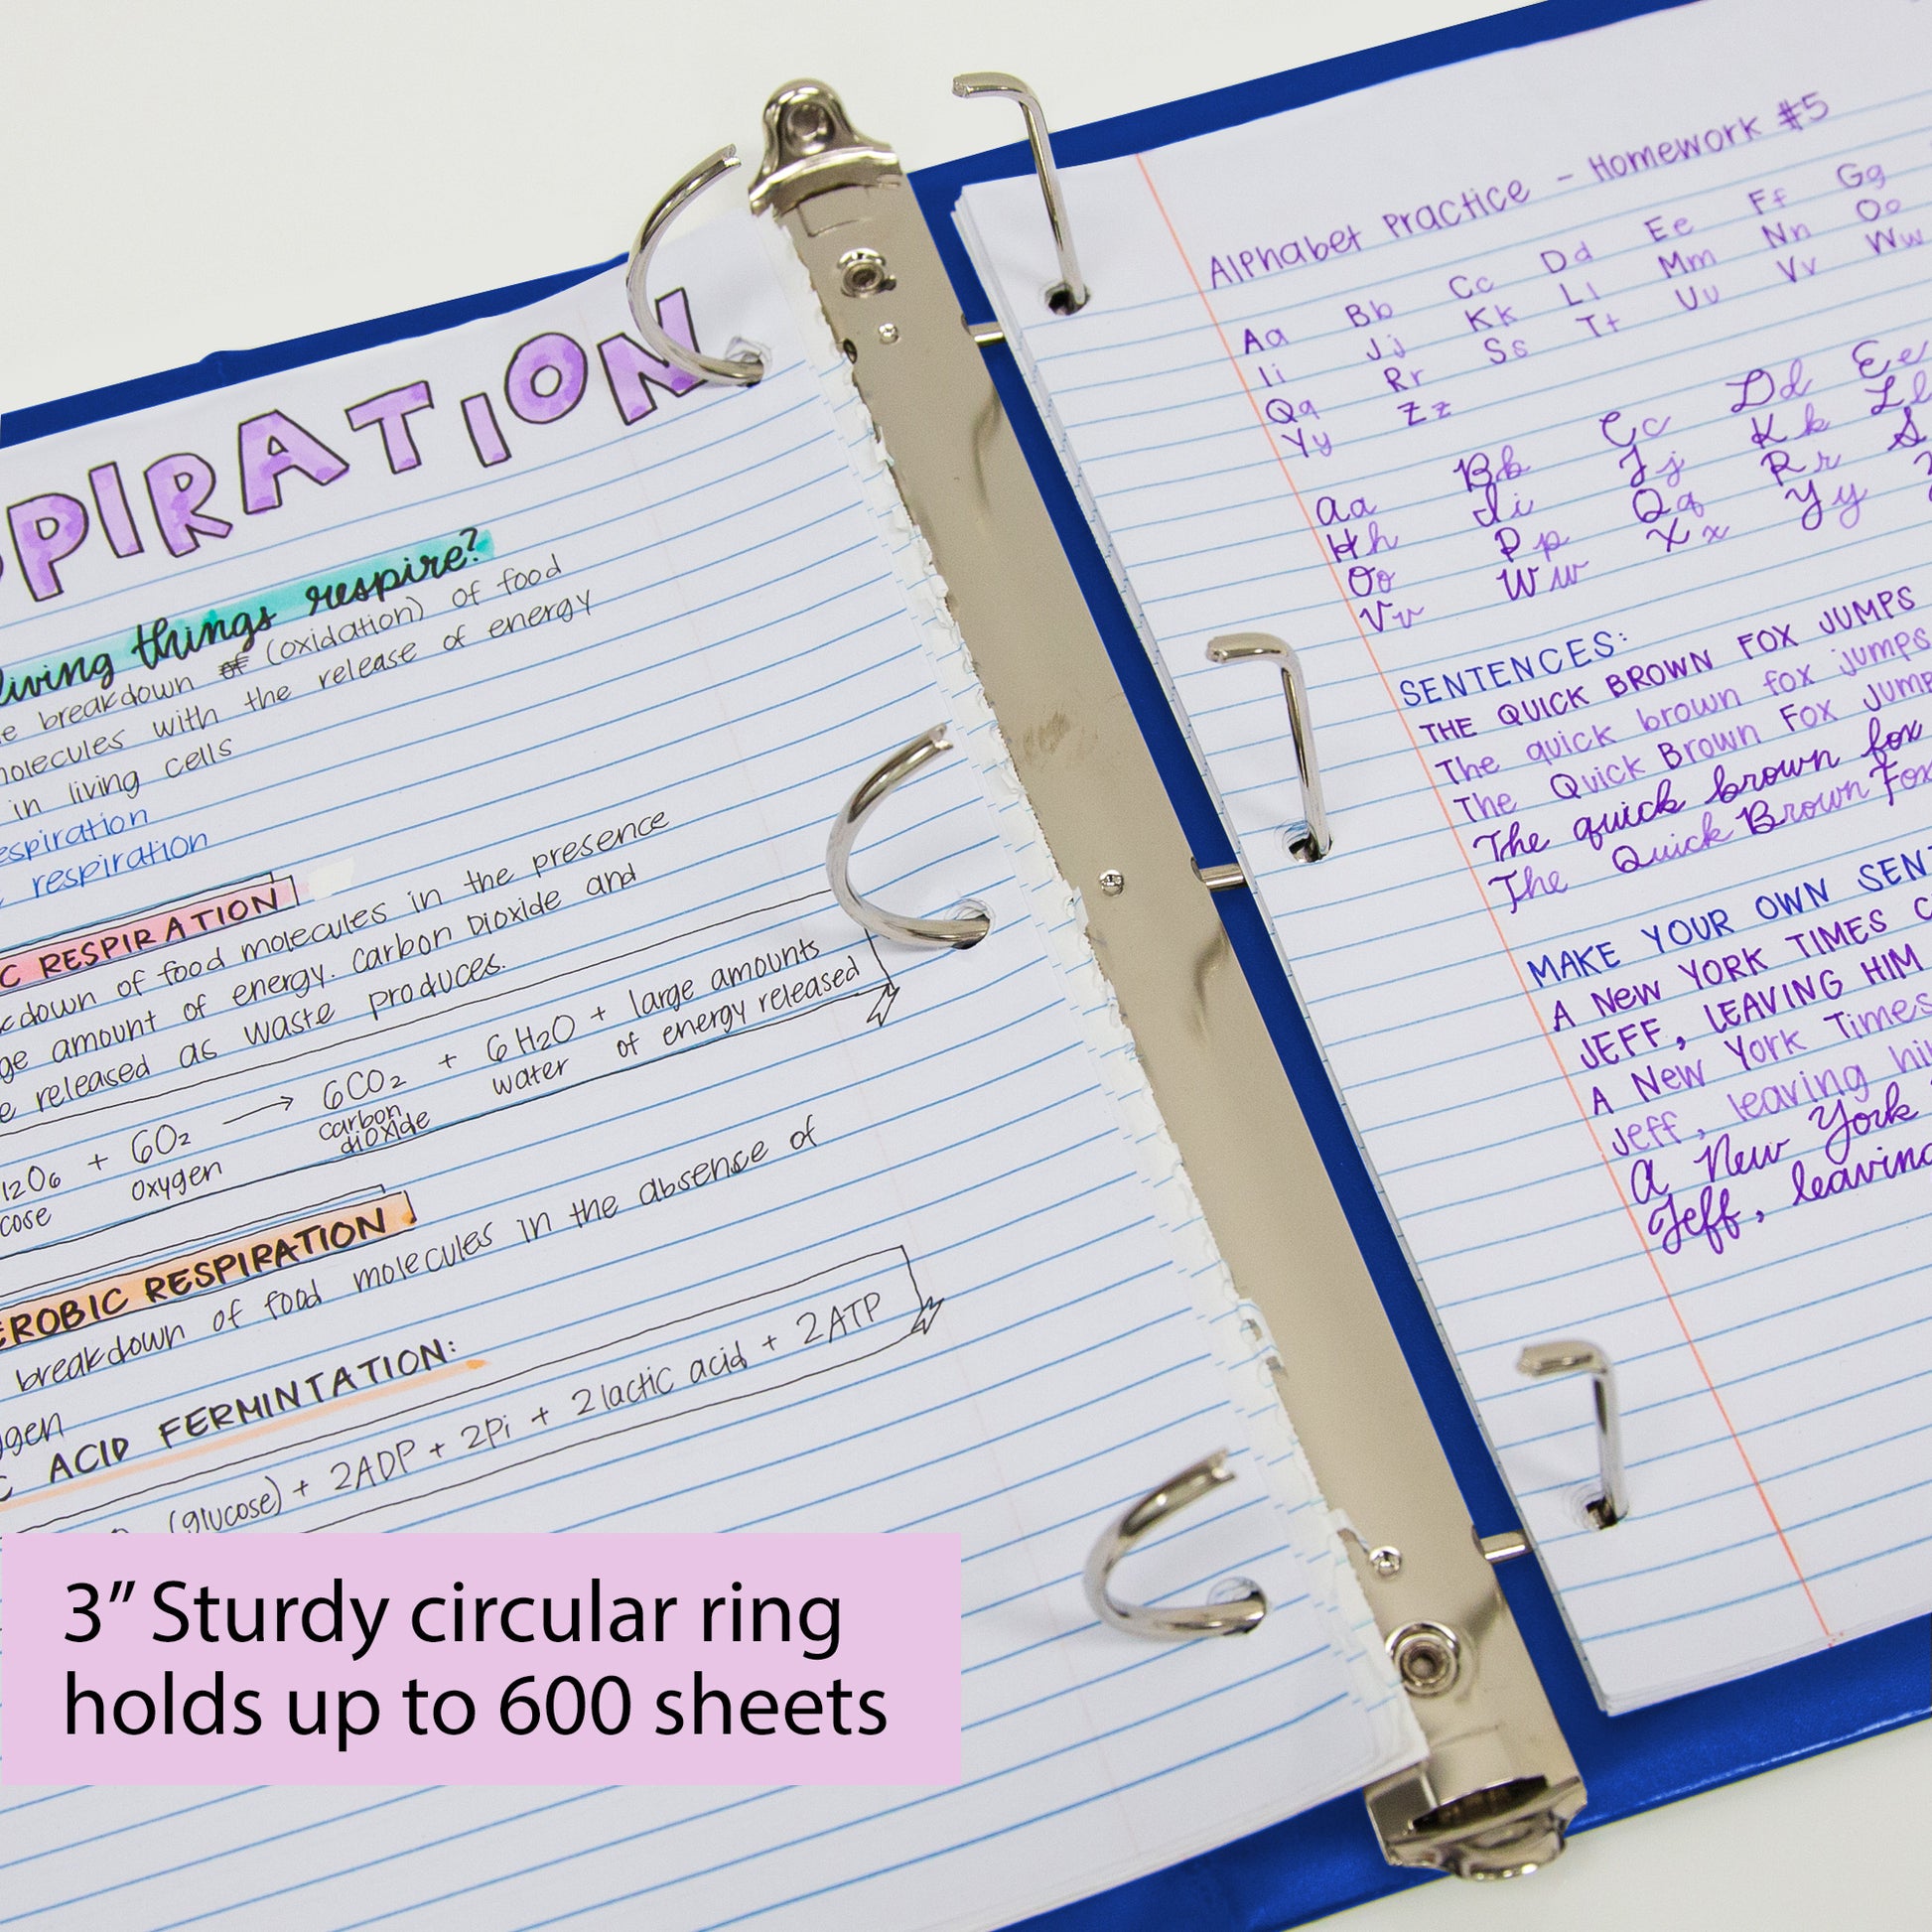 PIRATION
living things respire?
breakdown of (oxidation) of food
molecules with the release of energy
in living cells
respiration
respiration
C RESPIRATION
kdown of food molecules in the presence
ge amount of energy. Carbon Dioxide and
e released as waste produces.
12O6 + 6O2 → 6CO2 + 6H2O + large amounts
cose oxygen carbon dioxide water of energy released
EROBIC RESPIRATION
breakdown of food molecules in the absence of
ygen
C ACID FERMINTATION:
(glucose) + 2ADP + 2Pi + 2lactic acid + 2ATP
3” Sturdy circular ring
holds up to 600 sheets
Alphabet Practice - Homework #5
Aa Bb Cc Dd Ee Ff Gg
Ii Jj Kk Ll Mm Nn Oo
Qq Rr Ss Tt Uu Vv Ww
Yy Zz
Aa Bb Cc Dd Ee
Hh Ii Jj Kk Ll
Oo Pp Qq Rr S
Vv Ww Xx Yy
SENTENCES:
THE QUICK BROWN FOX JUMPS
The quick brown fox jumps
The Quick Brown Fox Jump
The quick brown fox
The Quick Brown Fox
MAKE YOUR OWN SENT
A NEW YORK TIMES C
JEFF, LEAVING HIM
A New York Times
Jeff, leaving hi
A New York
Jeff, leaving